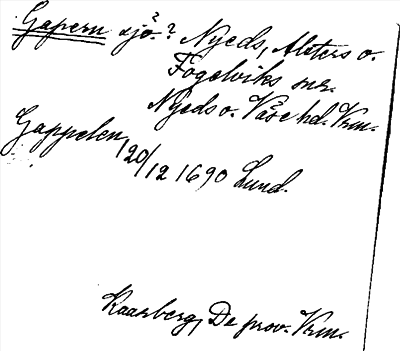 Gapern sjö? Nyeds, Alsters o.
Fogelviks snr.
Nyeds o. Väse hd. Vrm.
Gappelen 20/12 1690 Lund.
Kaarberg, De prov. Vrm.